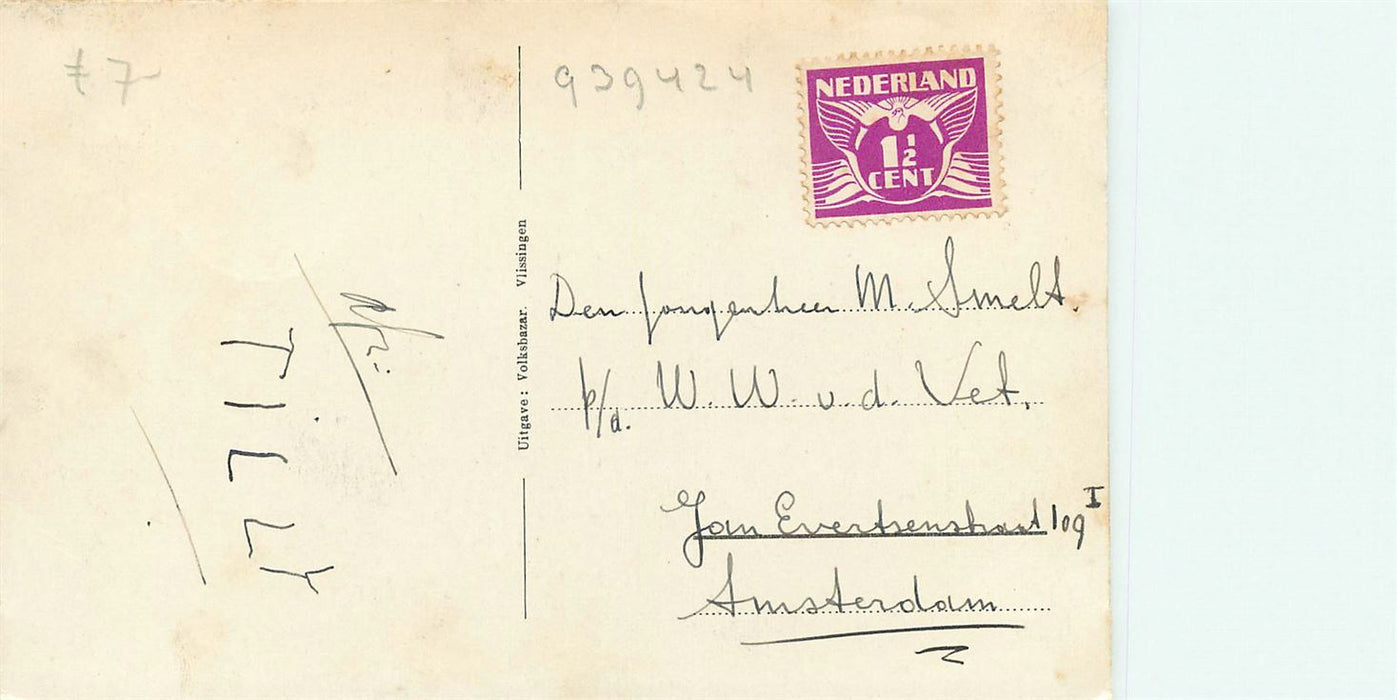 £ 7
939424
NEDERLAND
1 1/2
CENT
Uitgave: Volksbazar. Vlissingen
Den Jongenheer M. Smelt.
p/a. W. W. v. d. Vet.
Jan Evertsenstraat 109 I
Amsterdam
Afz:
TILLY